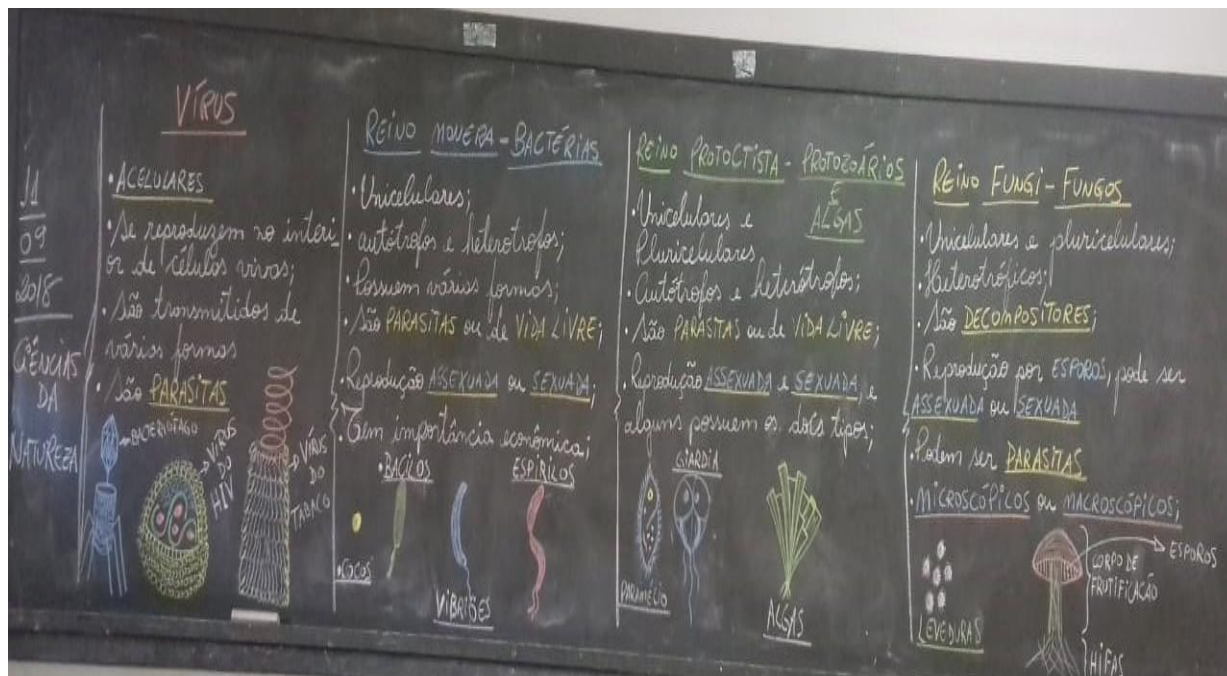 11
09
2018
CIÊNCIAS
DA
NATUREZA
VÍRUS
• ACELULARES
• Se reproduzem no interi-
or de células vivas;
• São transmitidos de
várias formas
• São PARASITAS
BACTERIÓFAGO
VÍRUS
DO
HIV
VÍRUS
DO
TABACO
REINO MONERA - BACTÉRIAS
• Unicelulares;
• autótrofos e heterotrofos;
• Possuem várias formas;
• São PARASITAS ou de VIDA LIVRE;
• Reprodução ASSEXUADA ou SEXUADA;
• Tem importância econômica;
• BACILOS
ESPIRILOS
• COCOS
VIBRIÕES
REINO PROTOCTISTA - PROTOZOÁRIOS
E
ALGAS
• Unicelulares e
Pluricelulares
• Autótrofos e heterótrofos;
• São PARASITAS ou de VIDA LIVRE;
• Reprodução ASSEXUADA e SEXUADA, e
alguns possuem os dois tipos;
GIARDIA
PARAMÉCIO
ALGAS
REINO FUNGI - FUNGOS
• Unicelulares e pluricelulares;
• Heterotróficos;
• São DECOMPOSITORES;
• Reprodução por ESPOROS, pode ser
ASSEXUADA ou SEXUADA
• Podem ser PARASITAS
• MICROSCÓPICOS ou MACROSCÓPICOS;
ESPOROS
CORPO DE
FRUTIFICAÇÃO
LEVEDURAS
HIFAS